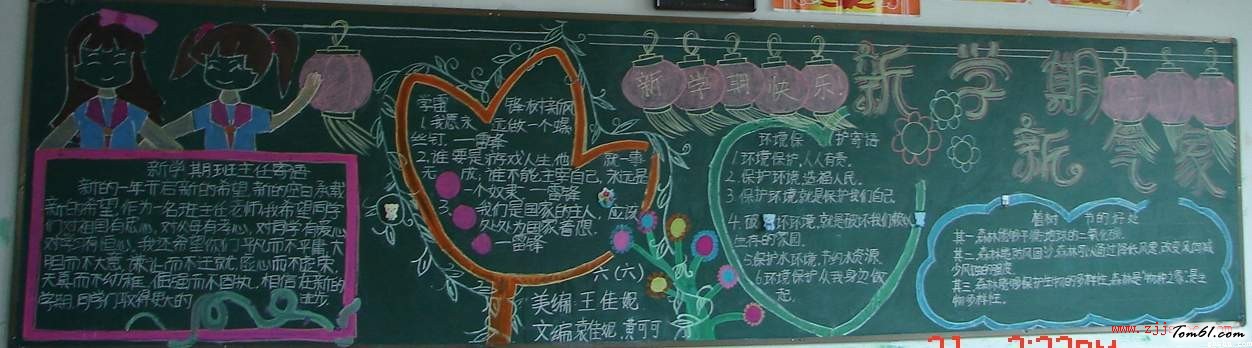 新学期班主任寄语
新的一年开启新的希望,新的空白承载
新的希望。作为一名班主任老师,我希望同学
们对祖国有忠心,对父母有孝心,对同学有爱心
对学习有恒心。我还希望你们平凡而不平庸大
胆而不大意,谦让而不迁就,虚心而不虚荣,
天真而不幼稚,倔强而不固执。相信在新的
学期,同学们取得更大的 进步。
学雷 锋树新风
1.我愿永 远做一个螺
丝钉。—雷锋
2.谁要是游戏人生,他 就一事
无 成;谁不能主宰自己,永远是
一个奴隶—雷锋
3. 我们是国家的主人,应该
处处为国家着想。
—雷锋
六(六)
美编 王佳妮
文编 袁佳妮,黄可可
新学期快乐
环境保 护寄语
1.环境保护,人人有责。
2.保护环境,造福人民。
3.保护环境就是保护我们自己.
4.破 坏环境,就是破坏我们赖以
生存的家园.
5.保护水环境,节约水资源
6.环境保护从我身边做
起.
新学期
新气象
植树 节的好处
其一:森林能够平衡地球的二氧化碳.
其二:森林能防风固沙,森林可以通过降低风速、改变风向减
少风沙的强度
其三:森林能够保护生物的多样性,森林是“物种之家”,是生
物多样性。
Tom61.com